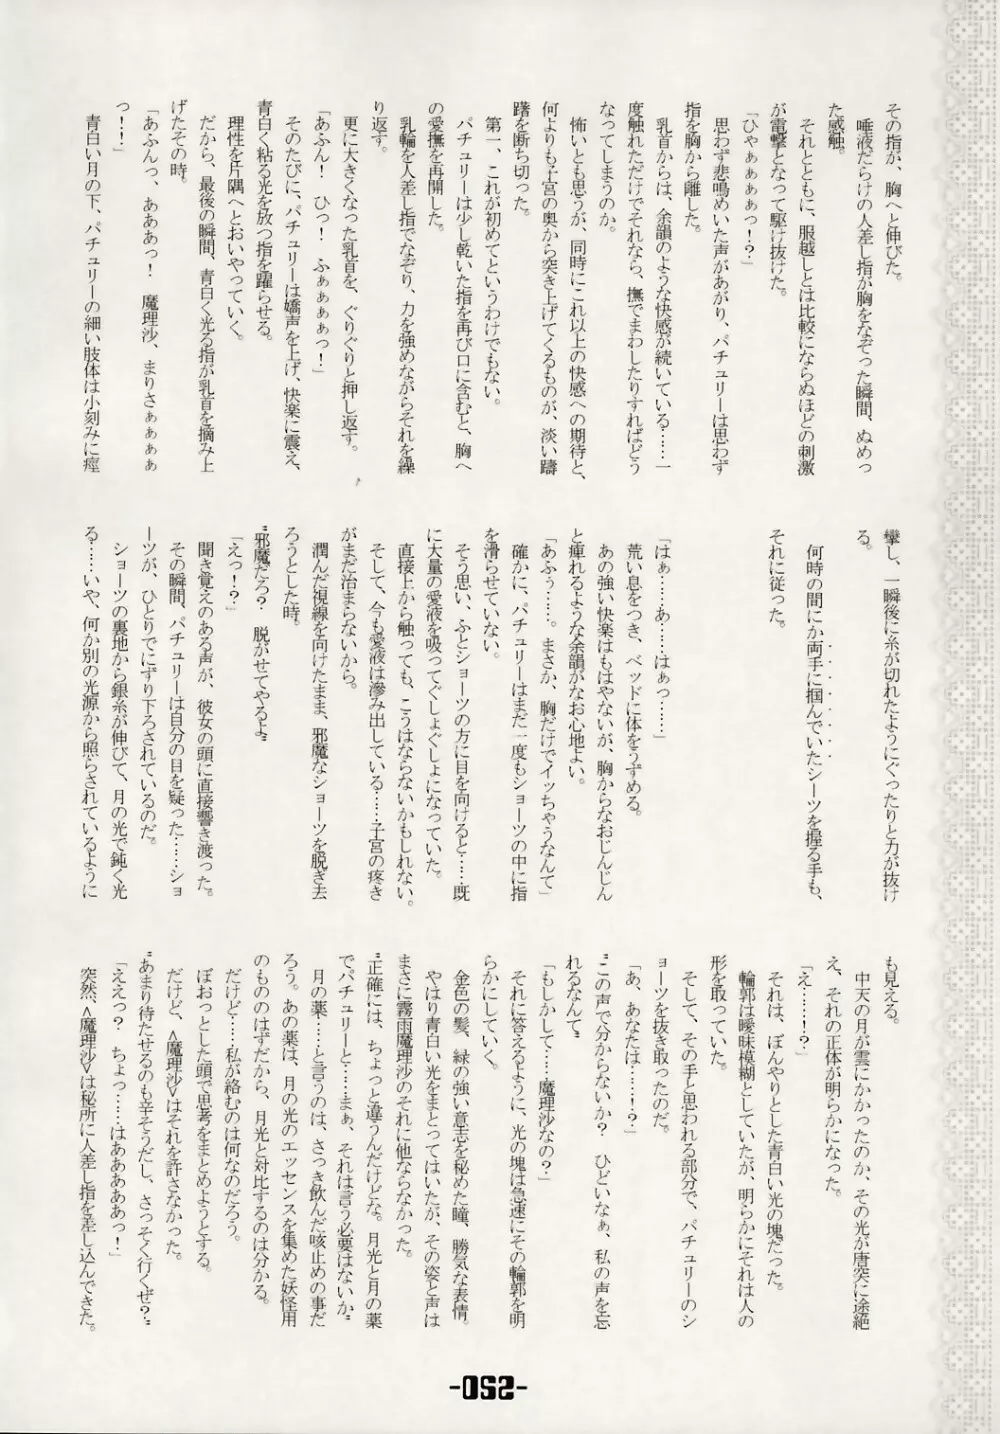 その指が、胸へと伸びた。
唾液だらけの人差し指が胸をなぞった瞬間、ぬめっ
た感触。
それとともに、服越しとは比較にならぬほどの刺激
が電撃となって駆け抜けた。
「ひゃぁぁぁぁっ！？」
思わず悲鳴めいた声があがり、パチュリーは思わず
指を胸から離した。
乳首からは、余韻のような快感が続いている……一
度触れただけでそれなら、撫でまわしたりすればどう
なってしまうのか。
怖いとも思うが、同時にこれ以上の快感への期待と、
何よりも子宮の奥から突き上げてくるものが、淡い躊
躇を断ち切った。
第一、これが初めてというわけでもない。
パチュリーは少し乾いた指を再び口に含むと、胸へ
の愛撫を再開した。
乳輪を人差し指でなぞり、力を強めながらそれを繰
り返す。
更に大きくなった乳首を、ぐりぐりと押し返す。
「あふん！　ひっ！　ふぁぁぁぁっ！」
そのたびに、パチュリーは嬌声を上げ、快楽に震え、
青白く粘る光を放つ指を躍らせる。
理性を片隅へとおいやっていく。
だから、最後の瞬間、青白く光る指が乳首を摘み上
げたその時。
「あふんっ、あああっ！　魔理沙、まりさぁぁぁぁ
っ！…！」
青白い月の下、パチュリーの細い肢体は小刻みに痙
攣し、一瞬後に糸が切れたようにぐったりと力が抜け
る。
何時の間にか両手に掴んでいたシーツを握る手も、
それに従った。
「はぁ……あ……はぁっ……」
荒い息をつき、ベッドに体をうずめる。
あの強い快楽はもはやないが、胸からなおじんじん
と痺れるような余韻がなお心地よい。
「あふぅ……。まさか、胸だけでイッちゃうなんて」
確かに、パチュリーはまだ一度もショーツの中に指
を滑らせていない。
そう思い、ふとショーツの方に目を向けると……既
に大量の愛液を吸ってぐしょぐしょになっていた。
直接上から触っても、こうはならないかもしれない。
そして、今も愛液は滲み出している……子宮の疼き
がまだ治まらないから。
潤んだ視線を向けたまま、邪魔なショーツを脱ぎ去
ろうとした時。
“邪魔だろ？　脱がせてやるよ”
「えっ！？」
聞き覚えのある声が、彼女の頭に直接響き渡った。
その瞬間、パチュリーは自分の目を疑った……ショ
ーツが、ひとりでにずり下ろされているのだ。
ショーツの裏地から銀糸が伸びて、月の光で鈍く光
る……いや、何か別の光源から照らされているように
も見える。
中天の月が雲にかかったのか、その光が唐突に途絶
え、それの正体が明らかになった。
「え…！？」
それは、ぼんやりとした青白い光の塊だった。
輪郭は曖昧模糊としていたが、明らかにそれは人の
形を取っていた。
そして、その手と思われる部分で、パチュリーのシ
ョーツを抜き取ったのだ。
「あ、あなたは……！？」
“この声で分からないか？　ひどいなぁ、私の声を忘
れるなんて”
「もしかして……魔理沙なの？」
それに答えるように、光の塊は急速にその輪郭を明
らかにしていく。
金色の髪、緑の強い意志を秘めた瞳、勝気な表情。
やはり青白い光をまとってはいたが、その姿と声は
まさに霧雨魔理沙のそれに他ならなかった。
“正確には、ちょっと違うんだけどな。月光と月の薬
でパチュリーと……まぁ、それは言う必要はないか”
月の薬……と言うのは、さっき飲んだ咳止めの事だ
ろう。あの薬は、月の光のエッセンスを集めた妖怪用
のもののはずだから、月光と対比するのは分かる。
だけど……私が絡むのは何なのだろう。
ぼおっとした頭で思考をまとめようとする。
だけど、＜魔理沙＞はそれを許さなかった。
“あまり待たせるのも辛そうだし、さっそく行くぜ？”
「ええっ？　ちょっ……はああああっ！」
突然、＜魔理沙＞は秘所に人差し指を差し込んできた。
-052-